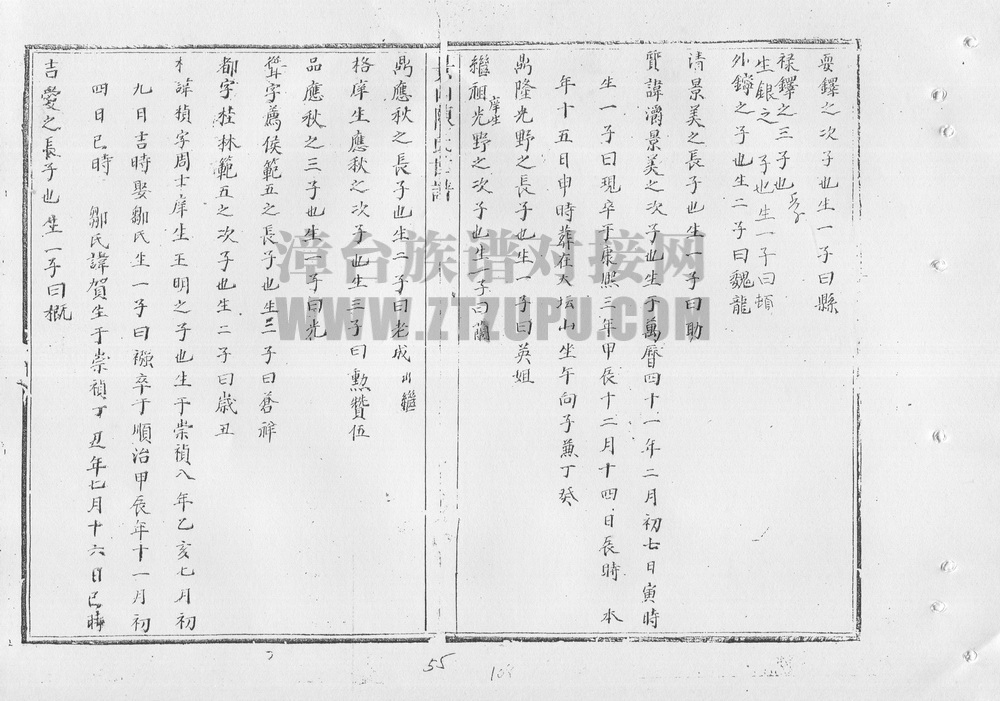 耍鐸之次子也生一子曰縣
祿鐸之三子也
生銀之子也生一子曰頓
外鎊之子也生二子曰魏龍
清景美之長子也生一子曰助
質諱灂景美之次子也生于萬曆四十一年二月初七日寅時
生一子曰現卒于康熙三年甲辰十二月十四日辰時本
年十五日申時葬在大坛山坐午向子兼丁癸
嵩隆光野之長子也生一子曰英姐
繼祖庠生光野之次子也生一子曰蘭
陳氏
禼應秋之長子也生二子曰老成出繼
格庠生應秋之次子也生三子曰勲贊伍
品應秋之三子也生一子曰光
聳字薦侯範五之長子也生三子曰蒼祥
都字桂林範五之次子也生二子曰歲丑
諱楨字周士庠生王明之子也生于崇禎八年乙亥七月初
九日吉時娶鄒氏生一子曰卒于順治甲辰年十一月初
四日巳時 鄒氏諱賀生于崇禎丁丑年七月十六日巳時
吉愛之長子也生一子曰概
漳台族谱对接网
WWW.ZTZUPU.COM
55
108